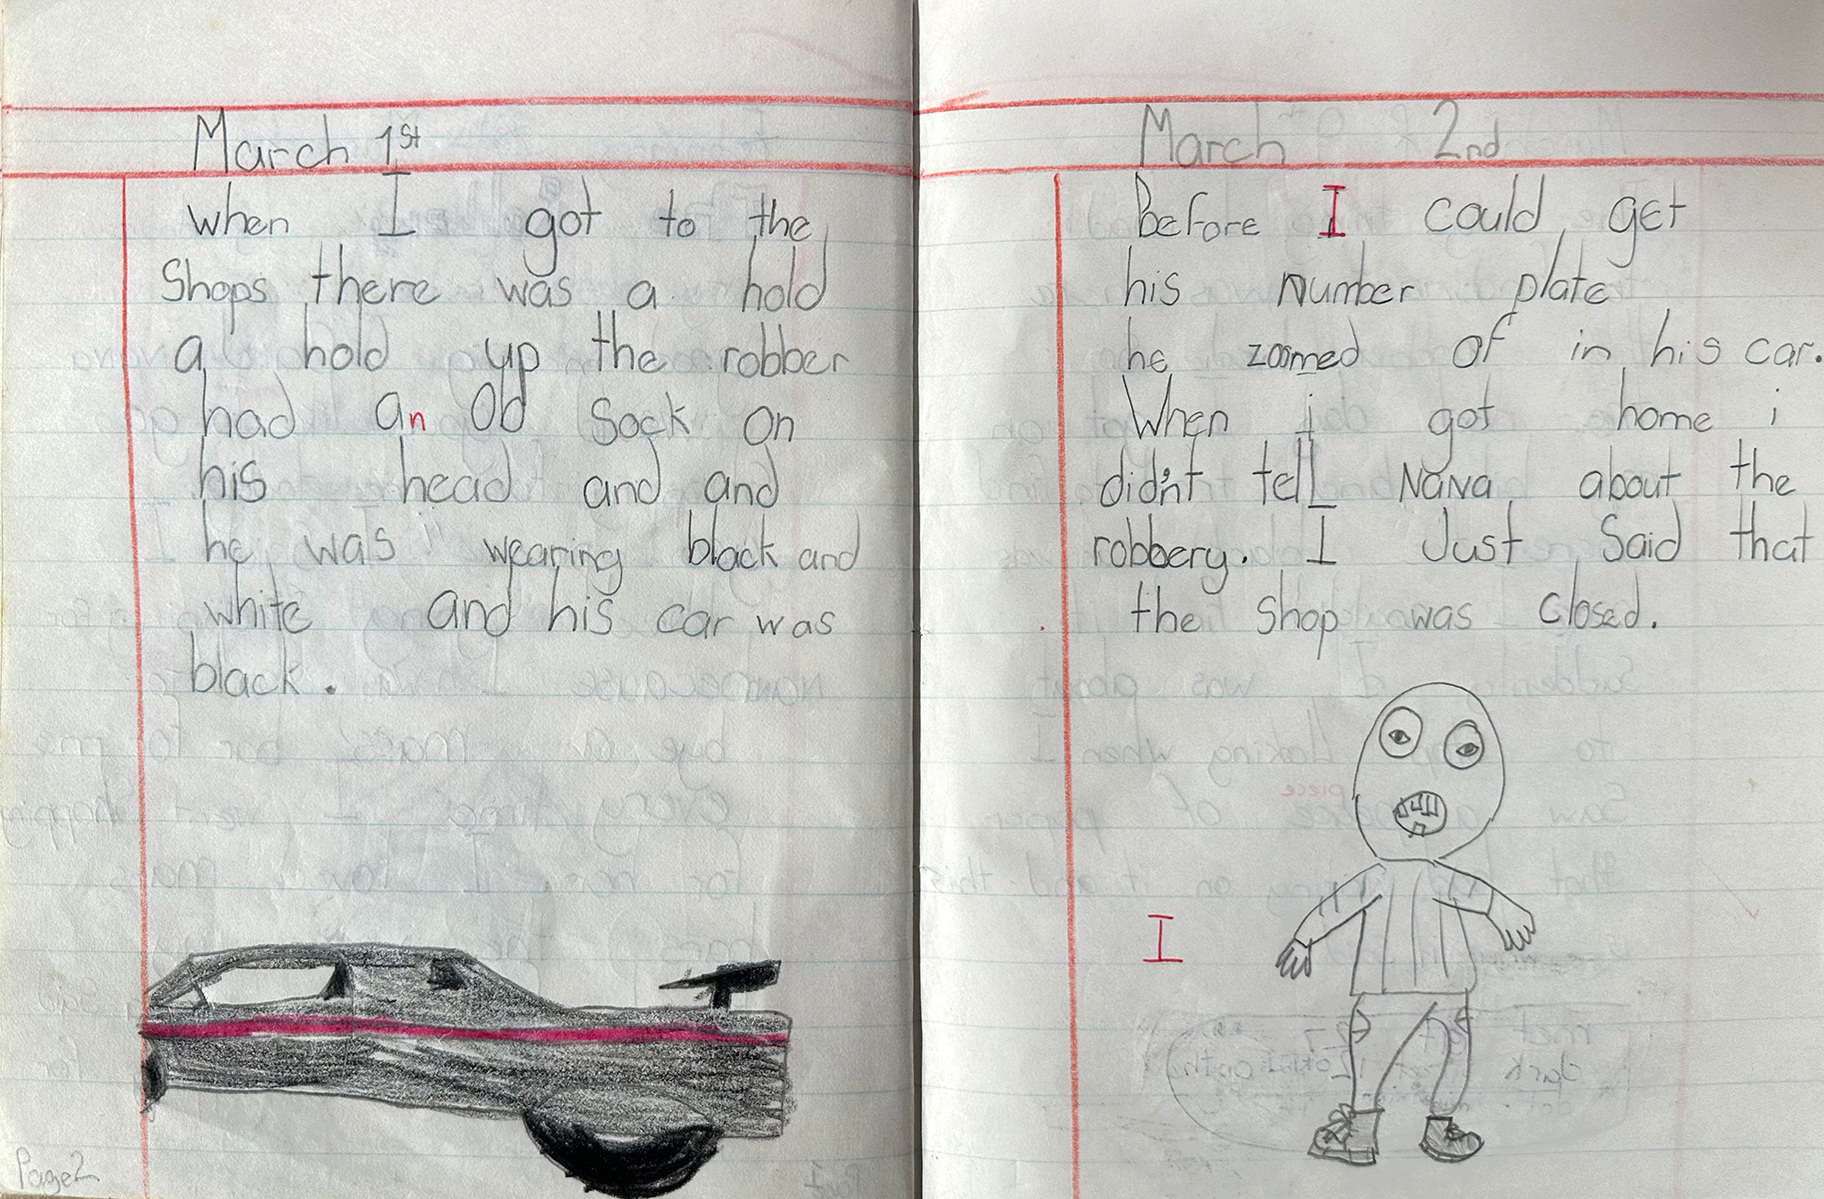 March 1st
when I got to the
Shops there was a hold
a hold up the robber
had an Old Sock on
his head and and
he was wearing black and
white and his car was
black.
Page 2
March 2nd
Before I could get
his number plate
he zoomed of in his car.
When i got home i
didn't tell Nana about the
robbery. I Just Said that
the shop was closed.
I